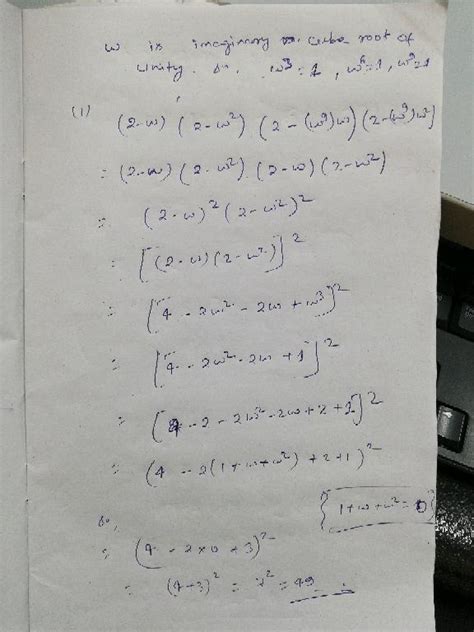 ω is imaginary cube root of
unity. so. ω³=1, ω⁶=1, ω⁹=1
(1)
(2-ω) (2-ω²) (2-(ω⁹)ω) (2-(ω⁹)ω²)
= (2-ω) (2-ω²) (2-ω) (2-ω²)
= (2-ω)² (2-ω²)²
= [(2-ω)(2-ω²)]²
= [4 - 2ω² - 2ω + ω³]²
= [4 - 2ω² - 2ω + 1]²
= [4 - 2 - 2ω² - 2ω + 2 + 1]²
= (4 - 2(1+ω+ω²) + 2+1)²
{1+ω+ω² = 0}
so,
= (4 - 2×0 + 3)²
= (4+3)² = 7² = 49